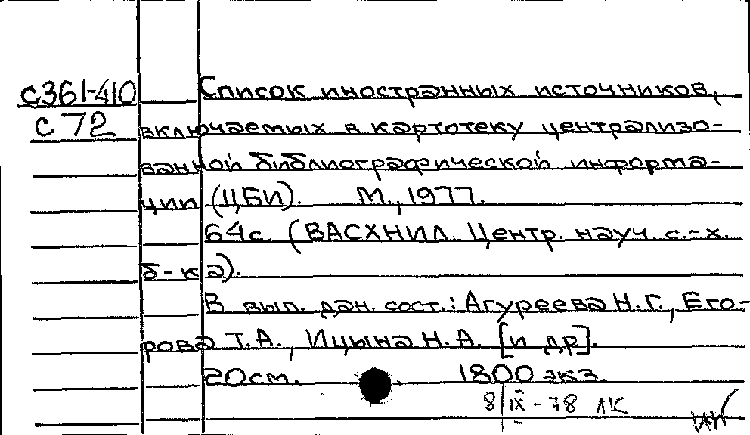 с361-410 Список иностранных источников,
с 72 включаемых в картотеку централизо-
ванной библиографической информа-
ции (ЦБИ). М., 1977.
64с. (ВАСХНИЛ. Центр. науч. с.-х.
б-ка).
В вып. дан. сост.: Агуреева Н.Г., Его-
рова Т.А., Ицына Н.А. [и др].
20см. 1800 экз.
8/IX - 78 ЛК